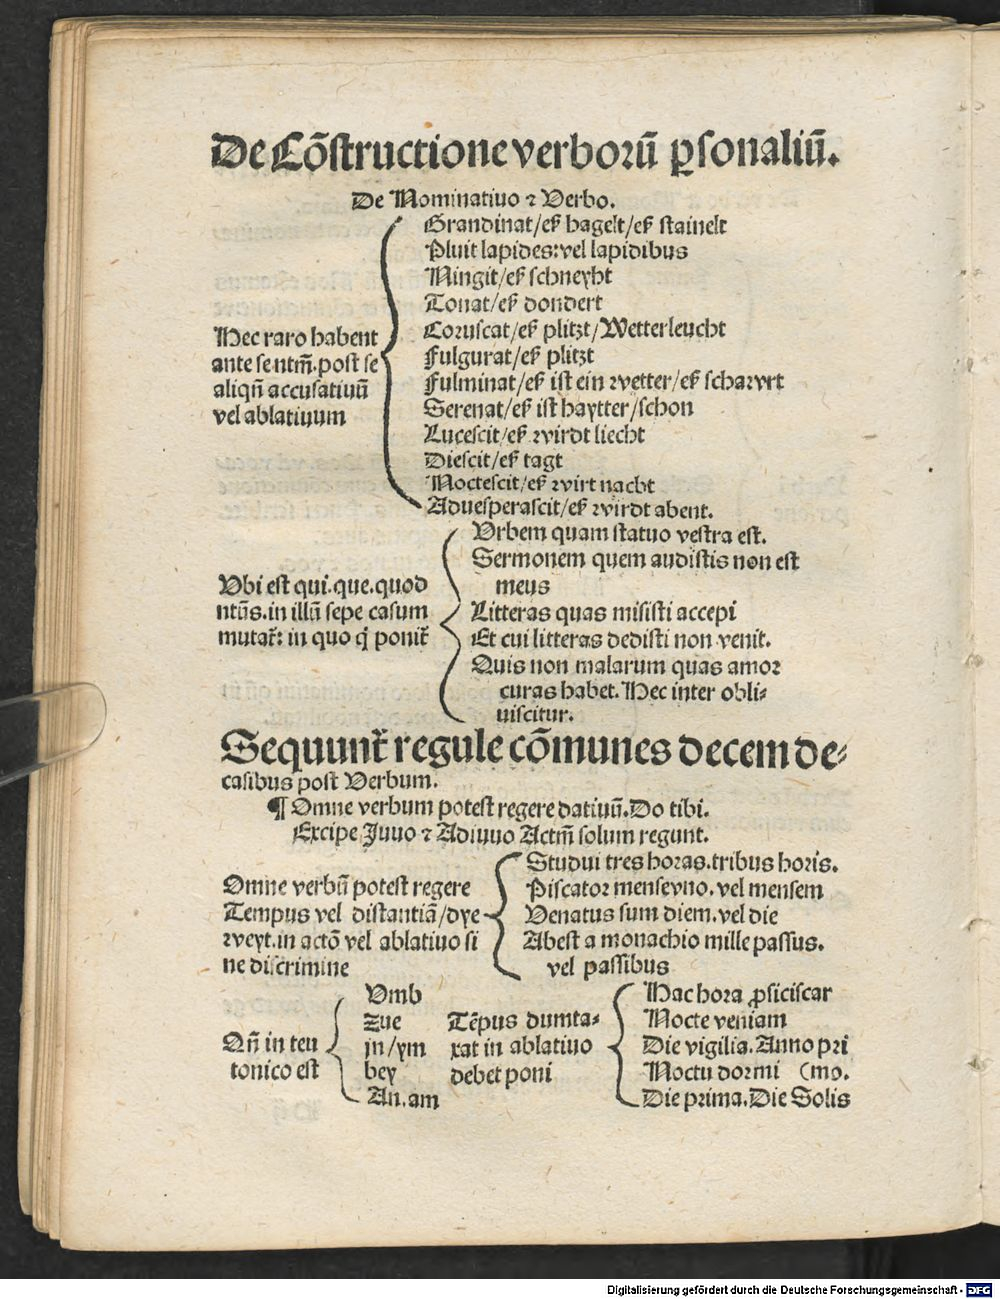 De Cōstructione verborū ꝑsonaliū.
De Nominatiuo ⁊ Verbo.
Hec raro habent
ante se ntm̄. post se
aliqn̄ accusatiuū
vel ablatiuum
Grandinat/eß hagelt/eß stainelt
Pluit lapides: vel lapidibus
Ningit/eß schneyht
Tonat/eß dondert
Coruscat/eß plitzt/Wetterleucht
Fulgurat/eß plitzt
Fulminat/eß ist ein wetter/eß
Serenat/eß ist haytter/schon
Lucescit/eß wirdt liecht
Diescit/eß tagt
Noctescit/eß wirt nacht
Aduesperascit/eß wirdt abent.
Vbi est qui. que. quod
ntūs. in illū sepe casum
mutat᷑: in quo q̄ ponit᷑
Vrbem quam statuo vestra est.
Sermonem quem audistis non est
meus
Litteras quas misisti accepi
Et cui litteras dedisti non venit.
Quis non malarum quas amor
curas habet. Hec inter obli-
uiscitur.
Sequunt᷑ regule cōmunes decem de-
casibus post Verbum.
¶ Omne verbum potest regere datiuū. Do tibi.
Excipe Juuo ⁊ Adiuuo Actm̄ solum regunt.
Omne verbū potest regere
Tempus vel distantiā/dye
weyt. in actō vel ablatiuo si
ne discrimine
Studui tres horas. tribus horis.
Piscator mense vno. vel mensem
Venatus sum diem. vel die
Abest a monachio mille passus.
vel passibus
Qn̄ in teu
tonico est
Vmb
Zue
jn/ym
bey
An. am
Tēpus dumta-
xat in ablatiuo
debet poni
Hac hora ꝓficiscar
Nocte veniam
Die vigilia. Anno pri
Noctu dormi (mo.
Die prima. Die Solis
Digitalisierung gefördert durch die Deutsche Forschungsgemeinschaft - DFG